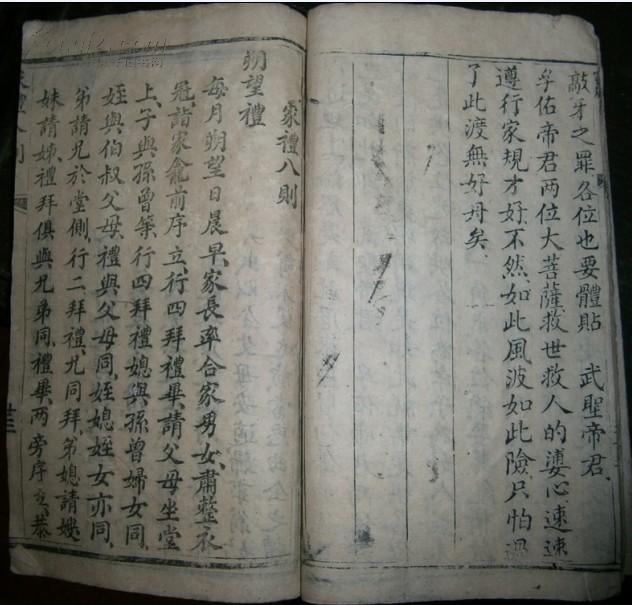 敲牙之罪各位也要體貼 武聖帝君
孚佑帝君两位大菩薩救世救人的婆心速速
遵行家規才好不然如此風波如此險只怕過
了此渡無好舟矣
家禮八則
朔望禮
每月朔望日晨早家長率合家男女肅整衣
冠詣家龕前序立行四拜禮畢請父母坐堂
上子與孫曾等行四拜禮媳與孫曾婦女同
姪與伯叔父母禮與父母同姪媳姪女亦同
弟請兄於堂側行二拜禮兄同拜弟媳請嫂
妹請姊禮拜俱與兄弟同禮畢两旁序立恭
家禮八則